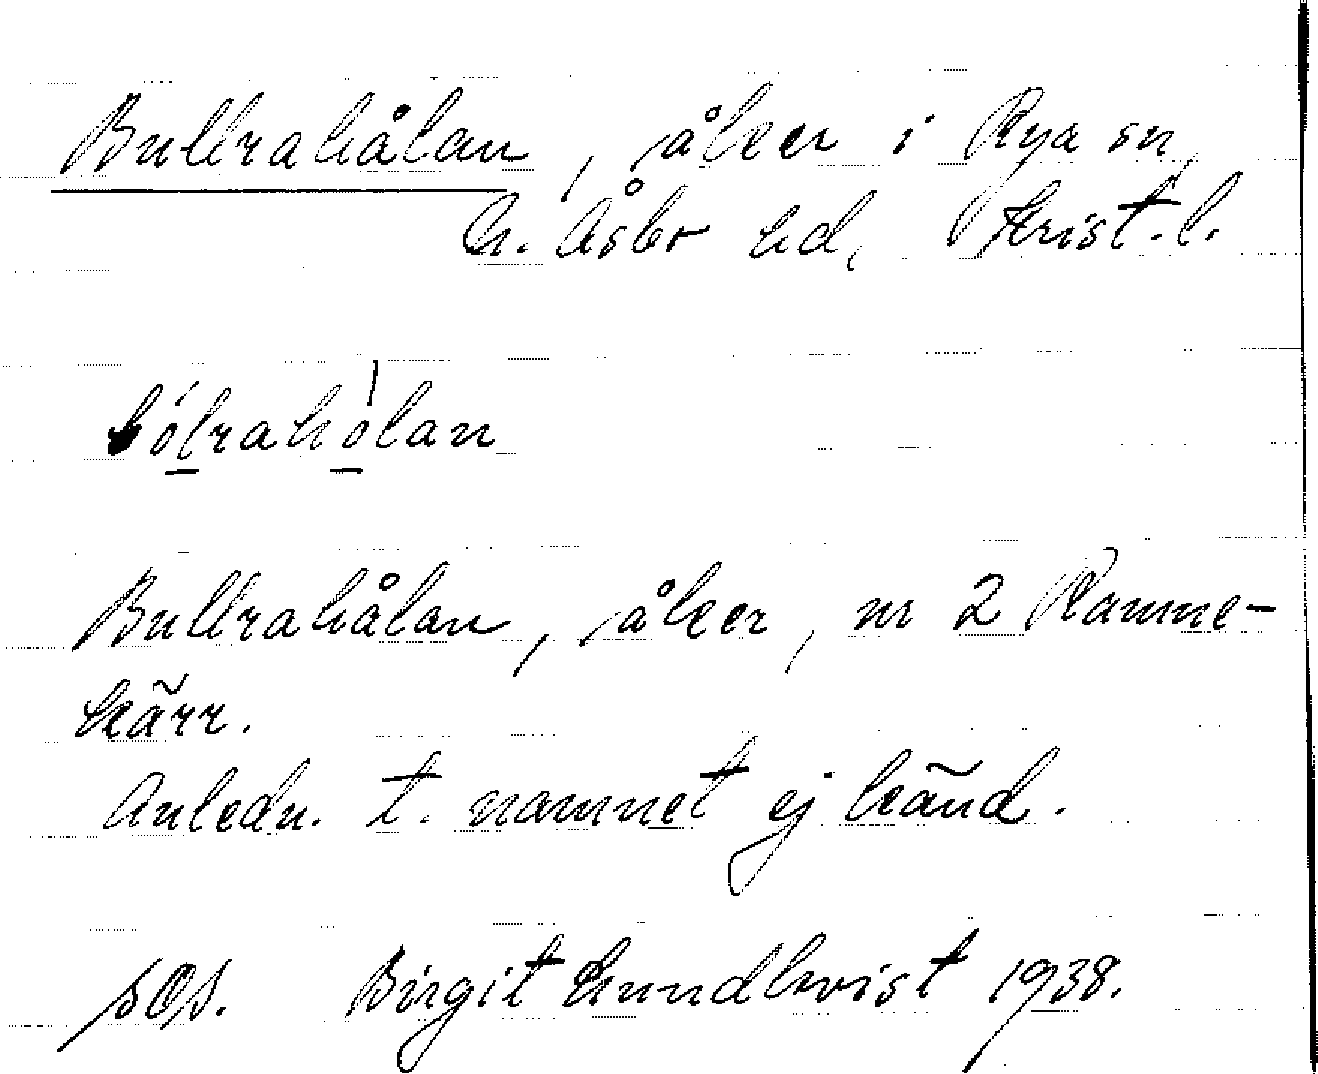 Bullrahålan, åker i Rya sn,
N. Åsbo hd, Krist. l.
bólrahòlan
Bullrahålan, åker, nr 2 Ramne-
kärr.
Anledn. t. namnet ej känd.
SOA. Birgit Lundkvist 1938.